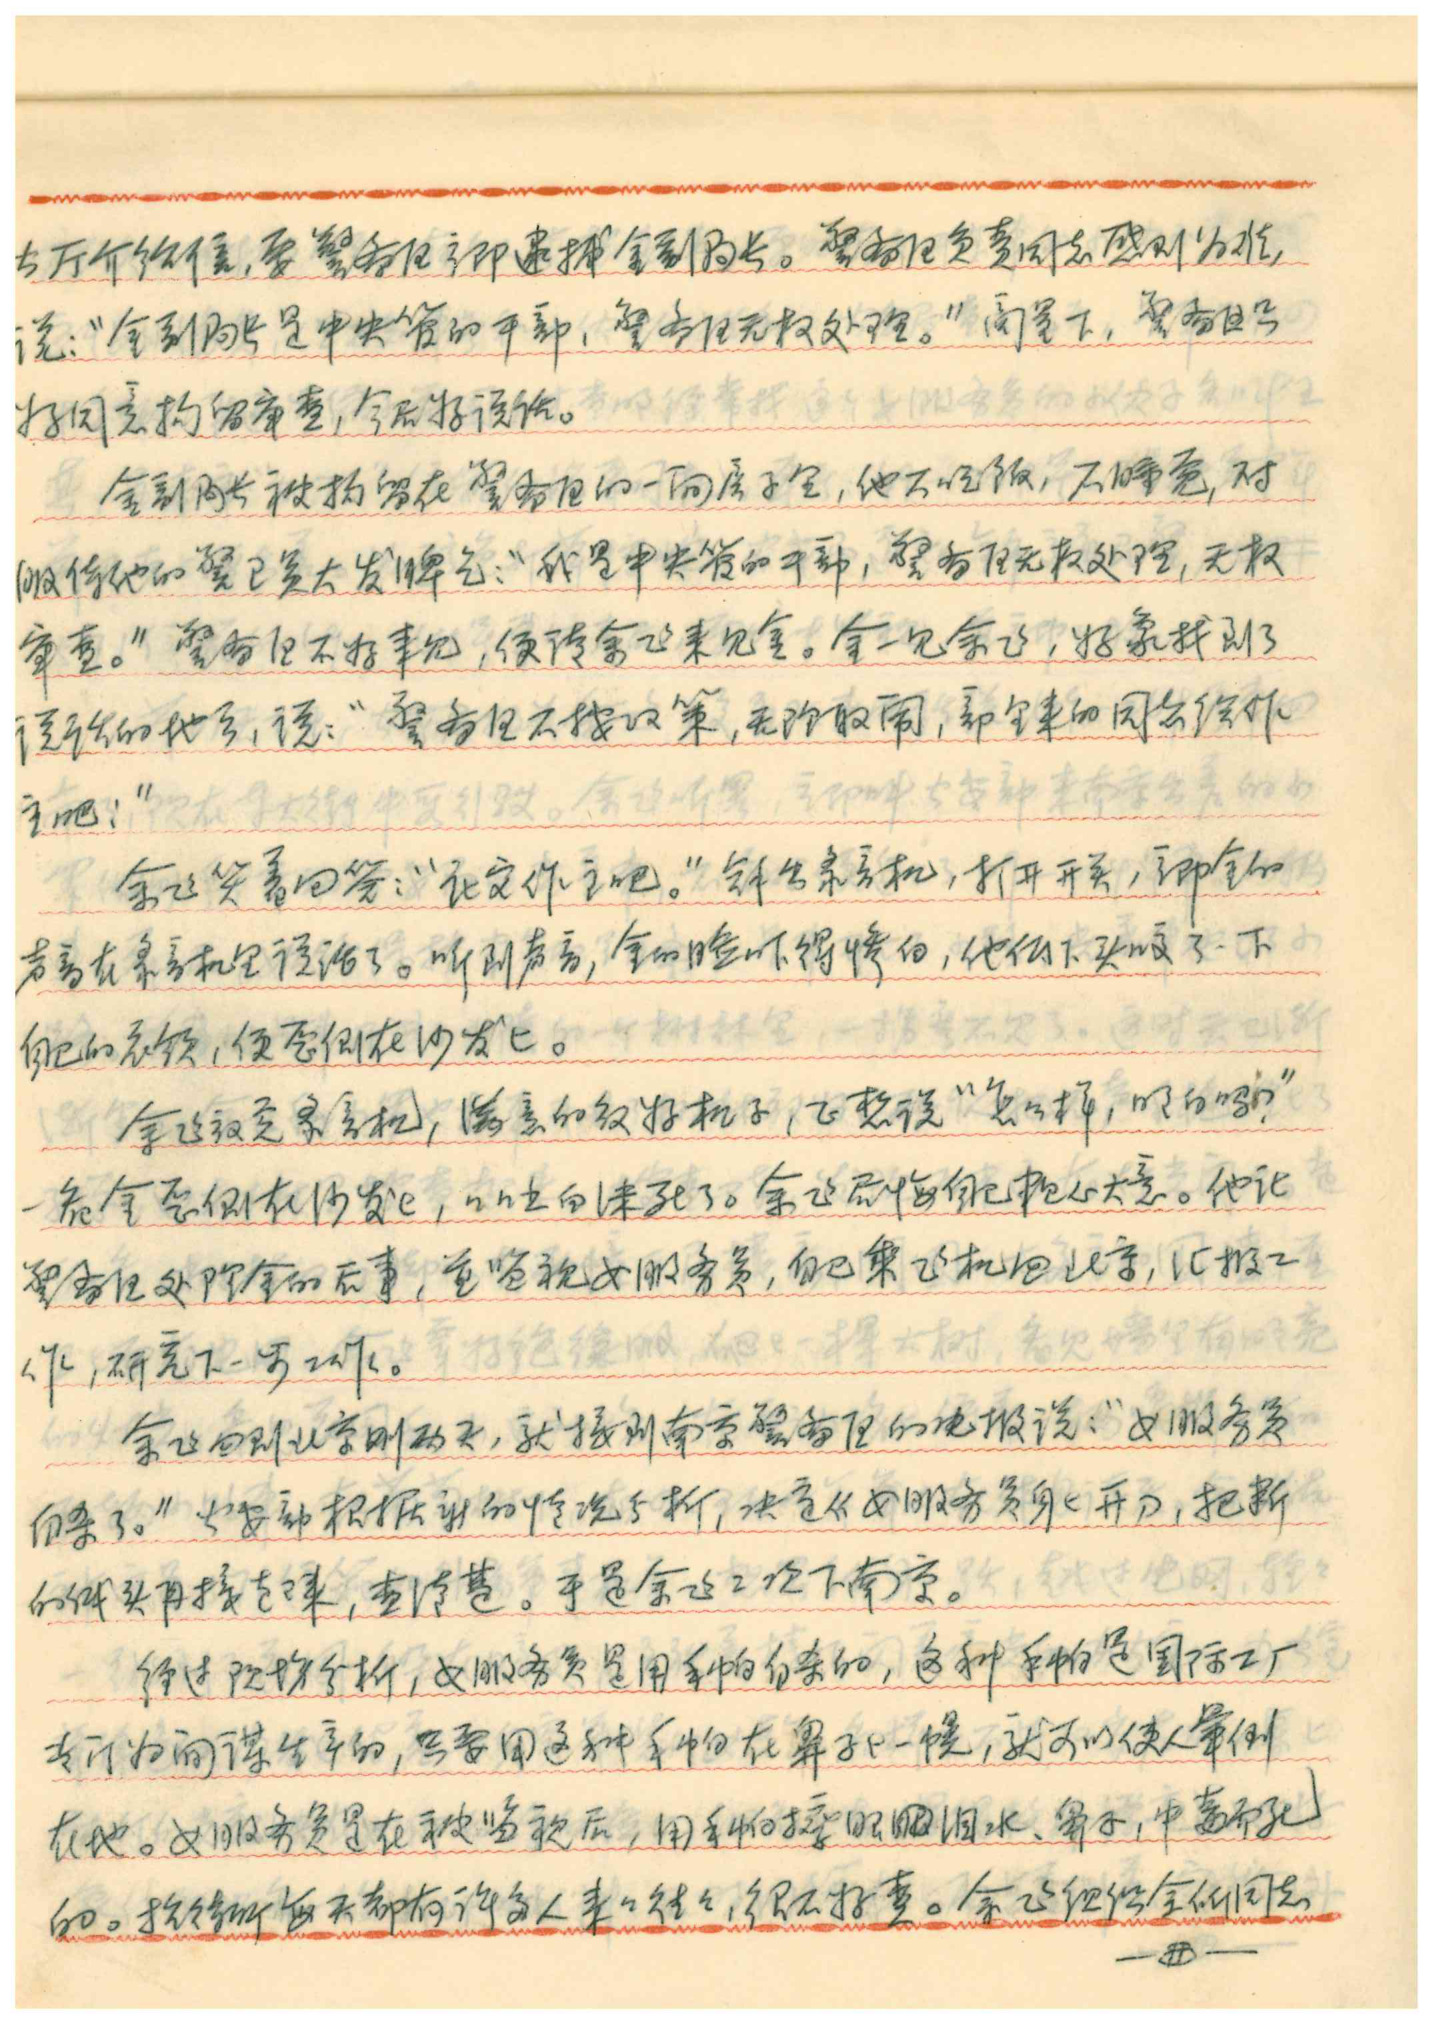 与厅介绍信，要警备区立即逮捕金副局长。警备区负责同志感到为难，
说：“金副局长是中央管的干部，警备区无权处理。”商量下，警备区只
好同意拘留审查，今后好说话。
金副局长被拘留在警备区的一间房子里，他不吃饭，不睡觉，对
服侍他的警卫员大发脾气：“我是中央管的干部，警备区无权处理，无权
审查。”警备区不好来见，便请余飞来见金。金一见余飞，好象找到了
说话的地方，说：“警备区不按政策，无理取闹，部里来的同志给作
主吧！”
余飞笑着回答：“让它作主吧。”拿出录音机，打开开关，立即金的
声音在录音机里说话了。听到声音，金的脸吓得惨白，他低下头咬了一下
自己的衣领，便歪倒在沙发上。
余飞放完录音机，满意的收好机子，正想说“怎么样，明白吗？”
一看金歪倒在沙发上，口吐白沫死了。余飞后悔自己粗心大意。他让
警备区处理金的后事，并监视女服务员，自己乘飞机回北京，汇报工
作，研究下一步工作。
余飞回到北京刚两天，就接到南京警备区的电报说：“女服务员
自杀了。”公安部根据新的情况分析，决定从女服务员身上开刀，把断
的线头再接起来，查清楚。于是余飞二次下南京。
经过现场分析，女服务员是用手帕自杀的，这种手帕是国际工厂
专门为间谍生产的，只要用这种手帕在鼻子上一幌，就可以使人晕倒
在地。女服务员是在被监视后，用手帕擦眼泪水、鼻子，中毒而死
的。招待所每天都有许多人来来往往，很不好查。余飞组织全所同志